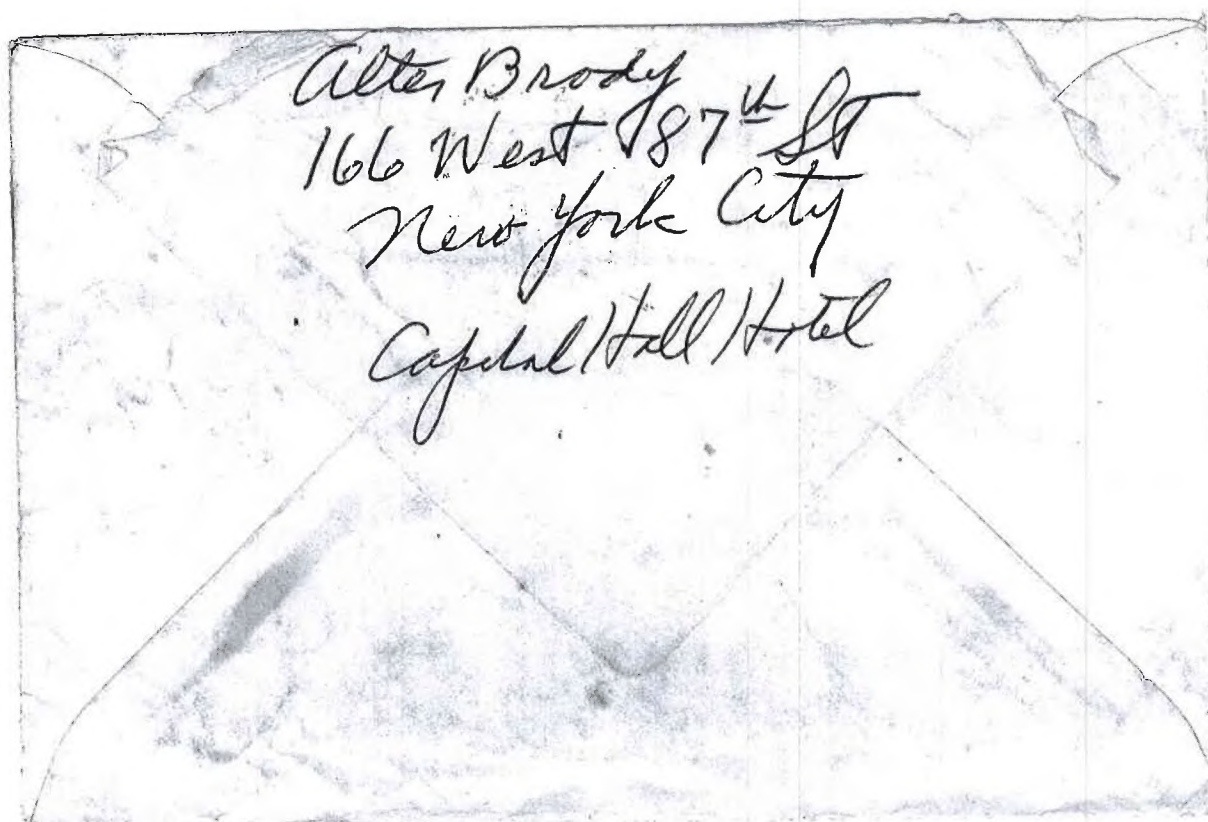 Alter Brody
166 West 87th St
New York City
Capital Hall Hotel